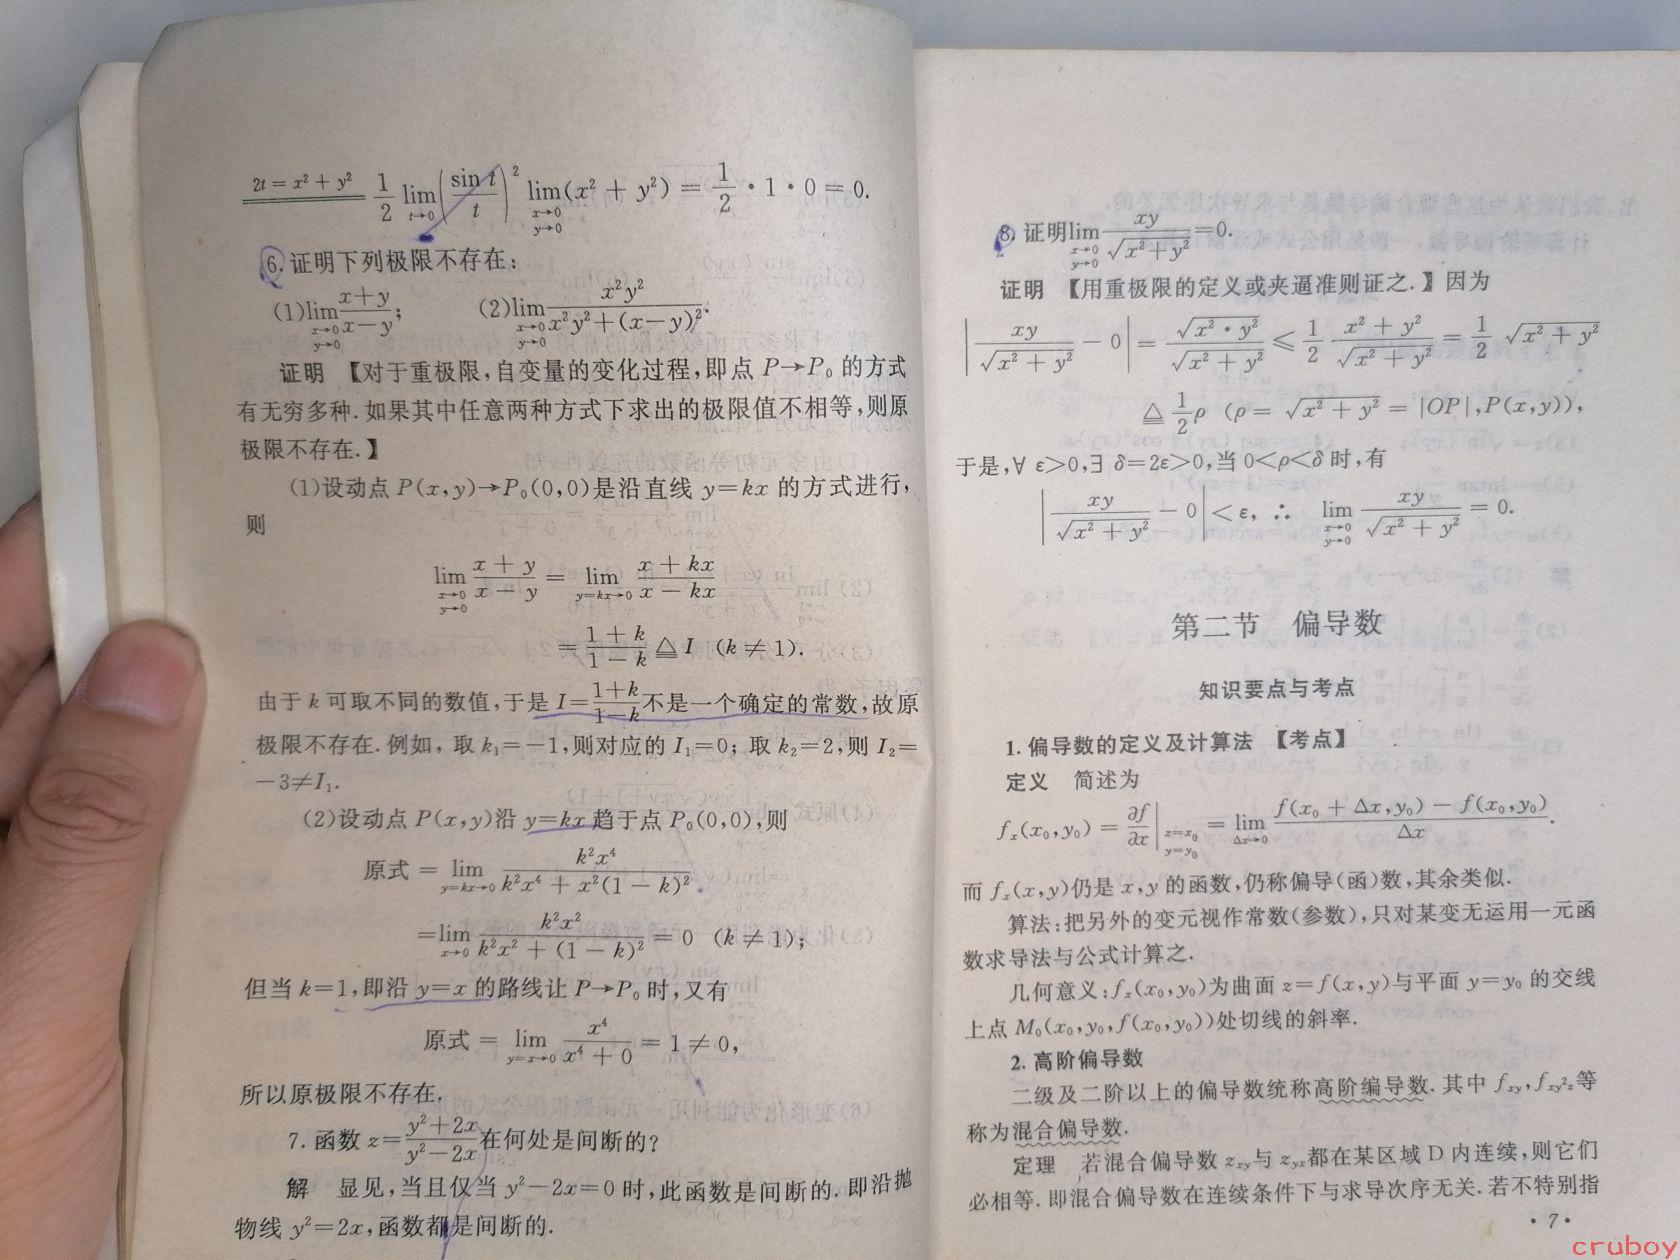 2t = x² + y² 1/2 lim t→0 (sin t / t)² lim x→0 y→0 (x² + y²) = 1/2 · 1 · 0 = 0.
6. 证明下列极限不存在：
(1) lim x→0 y→0 (x+y)/(x−y)； (2) lim x→0 y→0 x²y²/(x²y²+(x−y)²).
证明 【对于重极限，自变量的变化过程，即点 P→P₀ 的方式
有无穷多种. 如果其中任意两种方式下求出的极限值不相等，则原
极限不存在.】
(1)设动点 P(x,y)→P₀(0,0)是沿直线 y=kx 的方式进行，
则
lim x→0 y→0 (x + y)/(x − y) = lim y=kx→0 (x + kx)/(x − kx)
= (1 + k)/(1 − k) ≜ I (k ≠ 1).
由于 k 可取不同的数值，于是 I=(1+k)/(1−k)不是一个确定的常数，故原
极限不存在. 例如，取 k₁=−1，则对应的 I₁=0；取 k₂=2，则 I₂=
−3≠I₁.
(2)设动点 P(x,y)沿 y=kx 趋于点 P₀(0,0)，则
原式 = lim y=kx→0 k²x⁴/(k²x⁴ + x²(1 − k)²)
=lim x→0 k²x²/(k²x² + (1 − k)²) = 0 (k ≠ 1)；
但当 k=1，即沿 y=x 的路线让 P→P₀ 时，又有
原式 = lim y=x→0 x⁴/(x⁴ + 0) = 1 ≠ 0，
所以原极限不存在.
7. 函数 z=(y²+2x)/(y²−2x)在何处是间断的？
解 显见，当且仅当 y²−2x=0 时，此函数是间断的. 即沿抛
物线 y²=2x，函数都是间断的.
8. 证明 lim x→0 y→0 xy/√(x²+y²)=0.
证明 【用重极限的定义或夹逼准则证之.】因为
|xy/√(x² + y²) − 0| = √(x² · y²)/√(x² + y²) ≤ 1/2 (x² + y²)/√(x² + y²) = 1/2 √(x² + y²)
≜ 1/2 ρ (ρ = √(x² + y²) = |OP|, P(x,y))，
于是，∀ ε>0，∃ δ=2ε>0，当 0<ρ<δ 时，有
|xy/√(x² + y²) − 0| < ε， ∴ lim x→0 y→0 xy/√(x² + y²) = 0.
第二节 偏导数
知识要点与考点
1. 偏导数的定义及计算法 【考点】
定义 简述为
fₓ(x₀,y₀) = ∂f/∂x | x=x₀ y=y₀ = lim Δx→0 (f(x₀ + Δx,y₀) − f(x₀,y₀))/Δx.
而 fₓ(x,y)仍是 x,y 的函数，仍称偏导(函)数，其余类似.
算法：把另外的变元视作常数(参数)，只对某变无运用一元函
数求导法与公式计算之.
几何意义：fₓ(x₀,y₀)为曲面 z=f(x,y)与平面 y=y₀ 的交线
上点 M₀(x₀,y₀,f(x₀,y₀))处切线的斜率.
2. 高阶偏导数
二级及二阶以上的偏导数统称高阶编导数. 其中 f_xy, f_xy²z 等
称为混合偏导数.
定理 若混合偏导数 z_xy 与 z_yx 都在某区域 D 内连续，则它们
必相等. 即混合偏导数在连续条件下与求导次序无关. 若不特别指
· 7 ·
cruboy